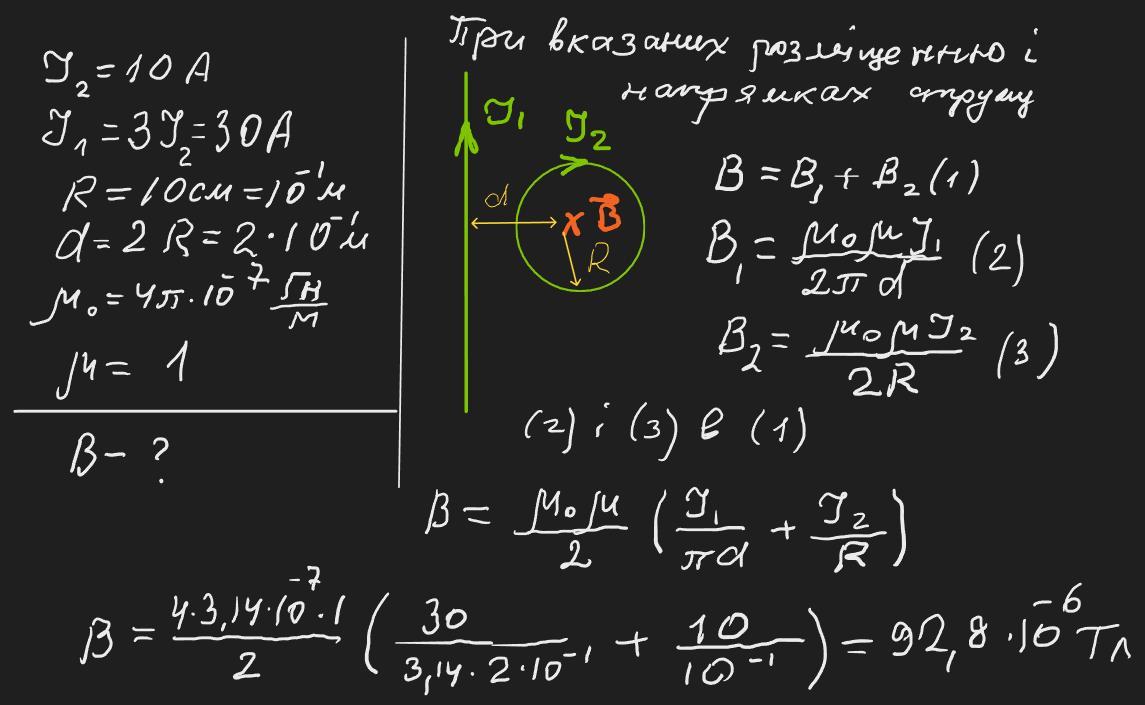 I₂ = 10 A
I₁ = 3I₂ = 30A
R = 10см = 10⁻¹м
d = 2R = 2·10⁻¹м
μ₀ = 4π·10⁻⁷ Гн/м
μ = 1
B - ?
При вказаних розміщенню і
напрямках струму
I₁
I₂
d
x B⃗
R
B = B₁ + B₂ (1)
B₁ = μ₀μI₁/2πd (2)
B₂ = μ₀μI₂/2R (3)
(2) і (3) в (1)
B = μ₀μ/2 (I₁/πd + I₂/R)
B = 4·3,14·10⁻⁷·1/2 (30/3,14·2·10⁻¹ + 10/10⁻¹) = 92,8·10⁻⁶ Тл